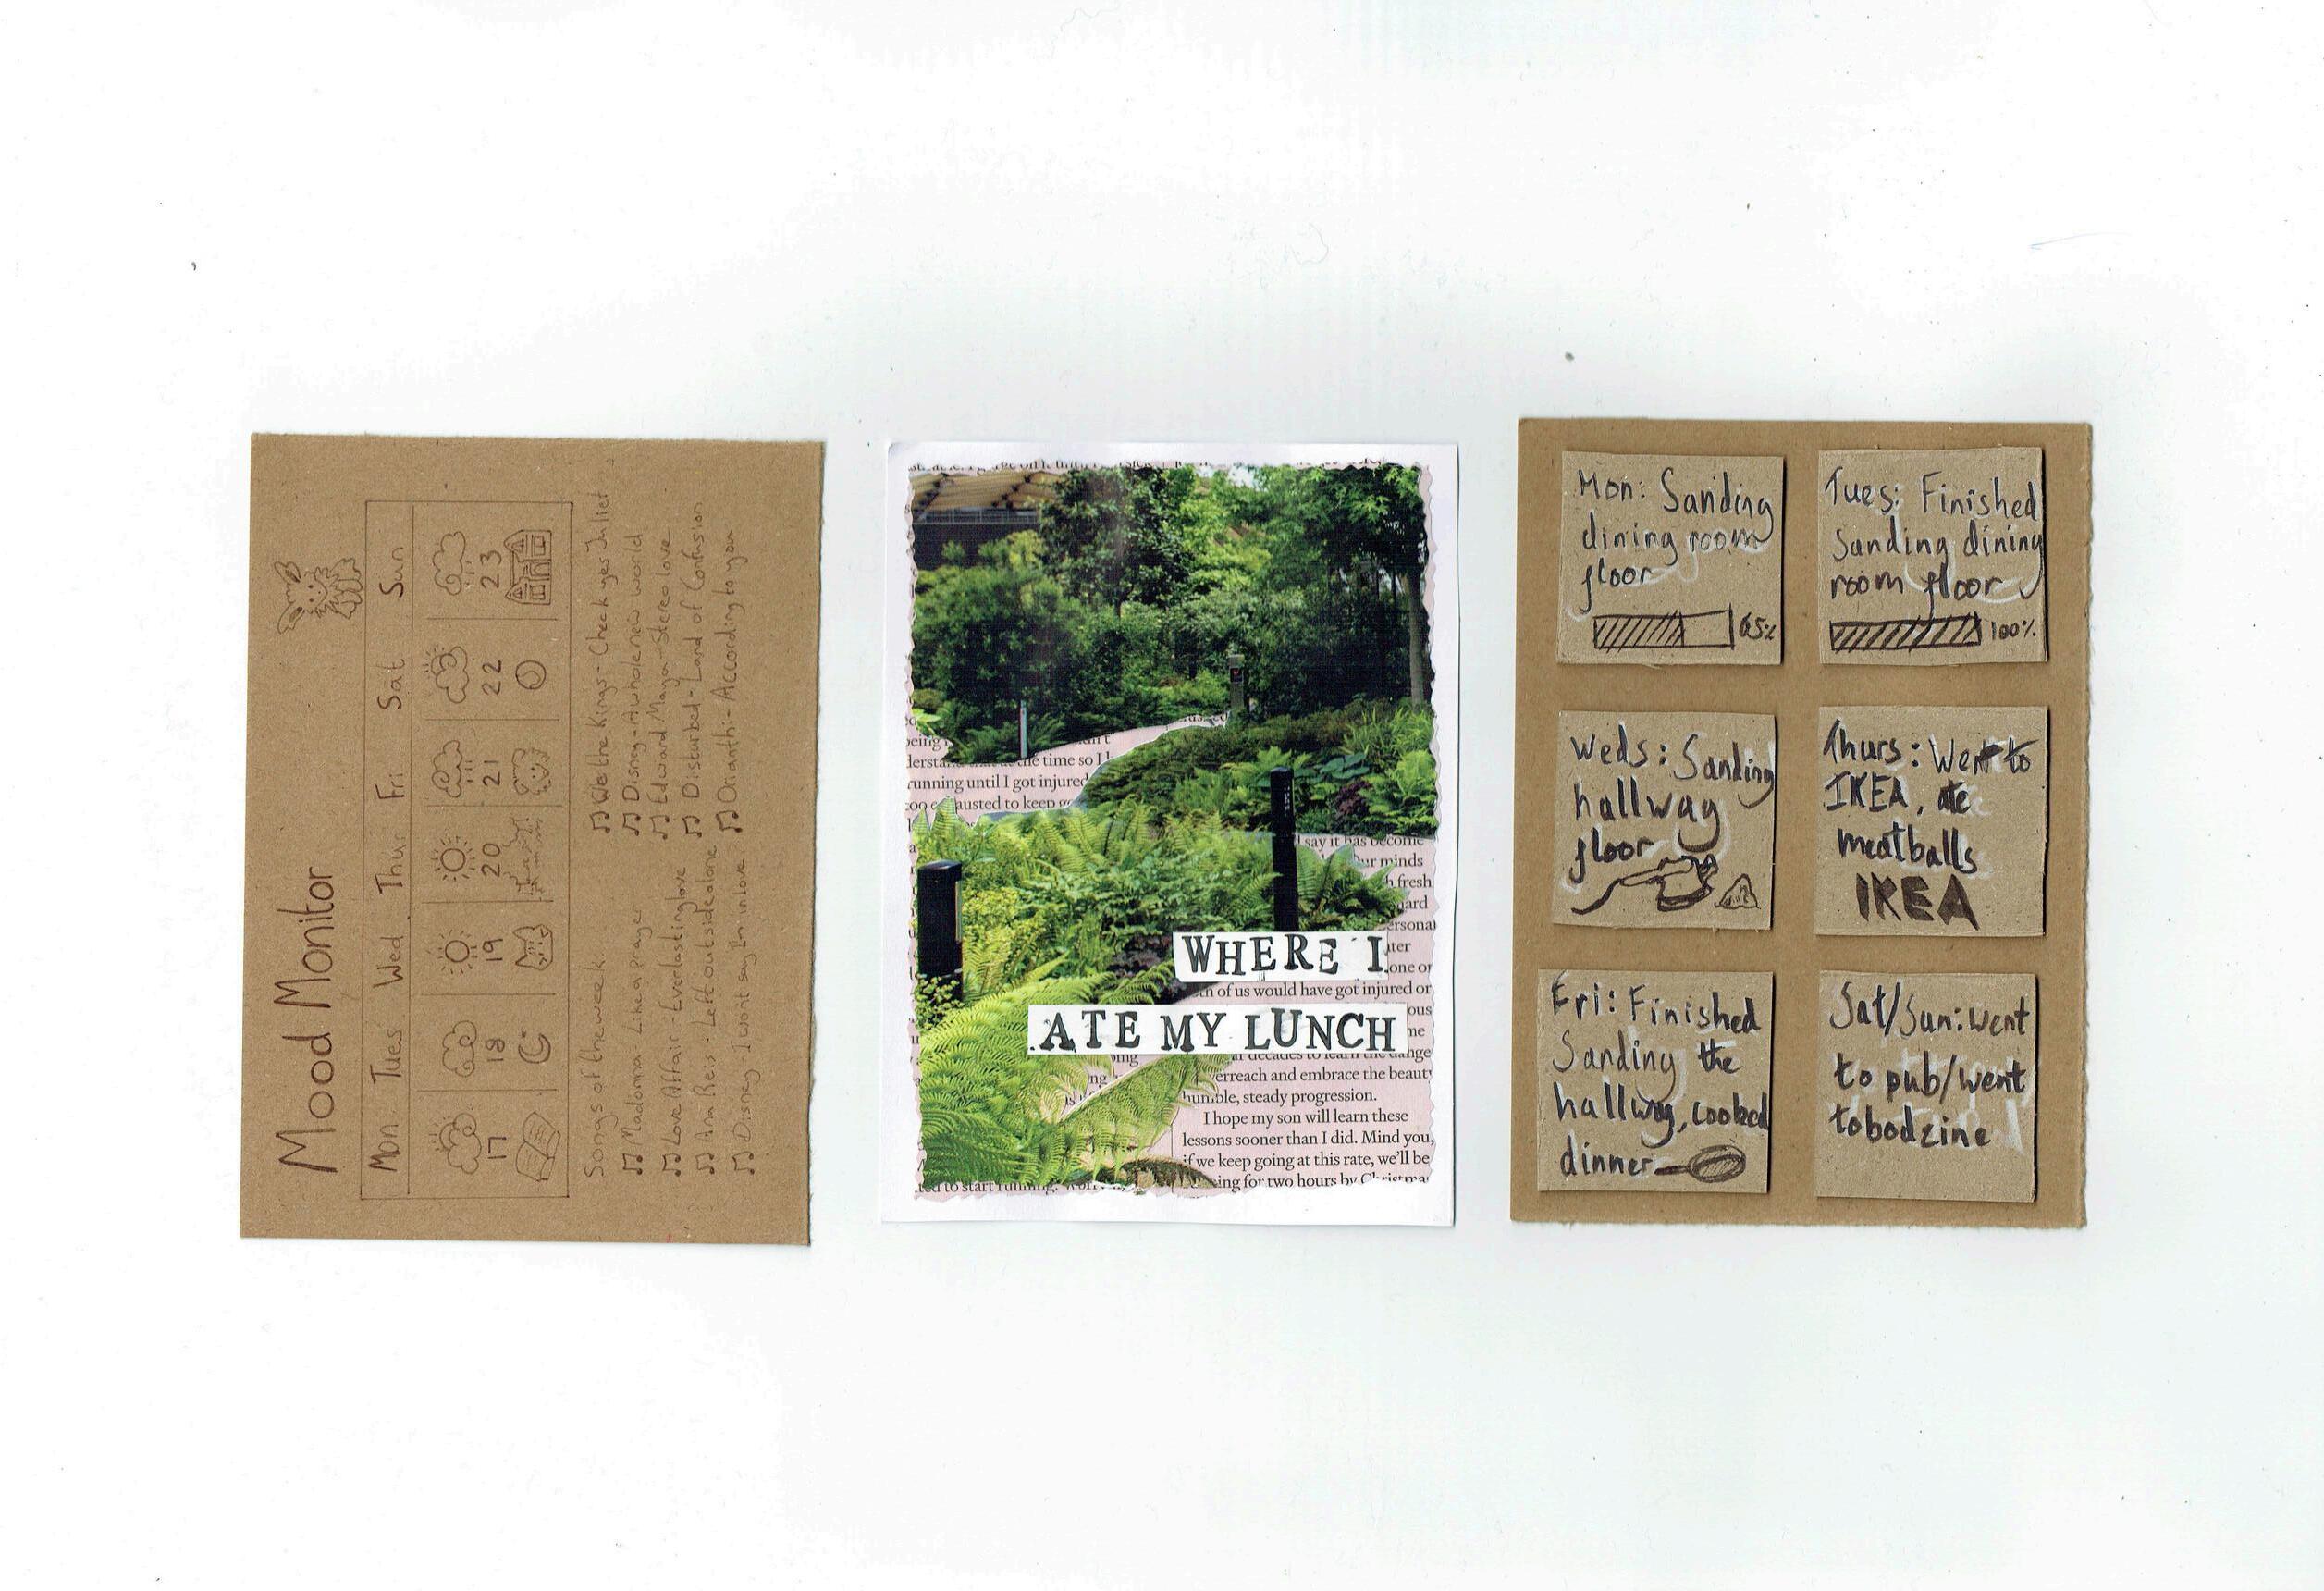 Mood Monitor
Mon Tues Wed Thur Fri Sat Sun
17 18 19 20 21 22 23
Songs of the week
Madonna Like a prayer
Love Affair - Everlasting love
Ann Reis - Left outside alone
Disney - I won't say I'm in love
We the Kings - Check yes Juliet
Disney - A whole new world
Edward Maya - Stereo love
Disturbed - Land of Confusion
Orianthi - According to you
being
the time so I
running until I got injured
exhausted to keep
say it has become
our minds
fresh
WHERE I
one or
of us would have got injured or
ATE MY LUNCH
decades to learn the
erreach and embrace the beauty
humble, steady progression.
I hope my son will learn these
lessons sooner than I did. Mind you,
if we keep going at this rate, we'll be
for two hours by Christma
to start running.
Mon: Sanding
dining room
floor
65%
Tues: Finished
Sanding dining
room floor
100%
Weds: Sanding
hallway
floor
Thurs: Went to
IKEA, ate
meatballs
IKEA
Fri: Finished
Sanding the
hallway, cooked
dinner
Sat/Sun: went
to pub/went
to bodzine